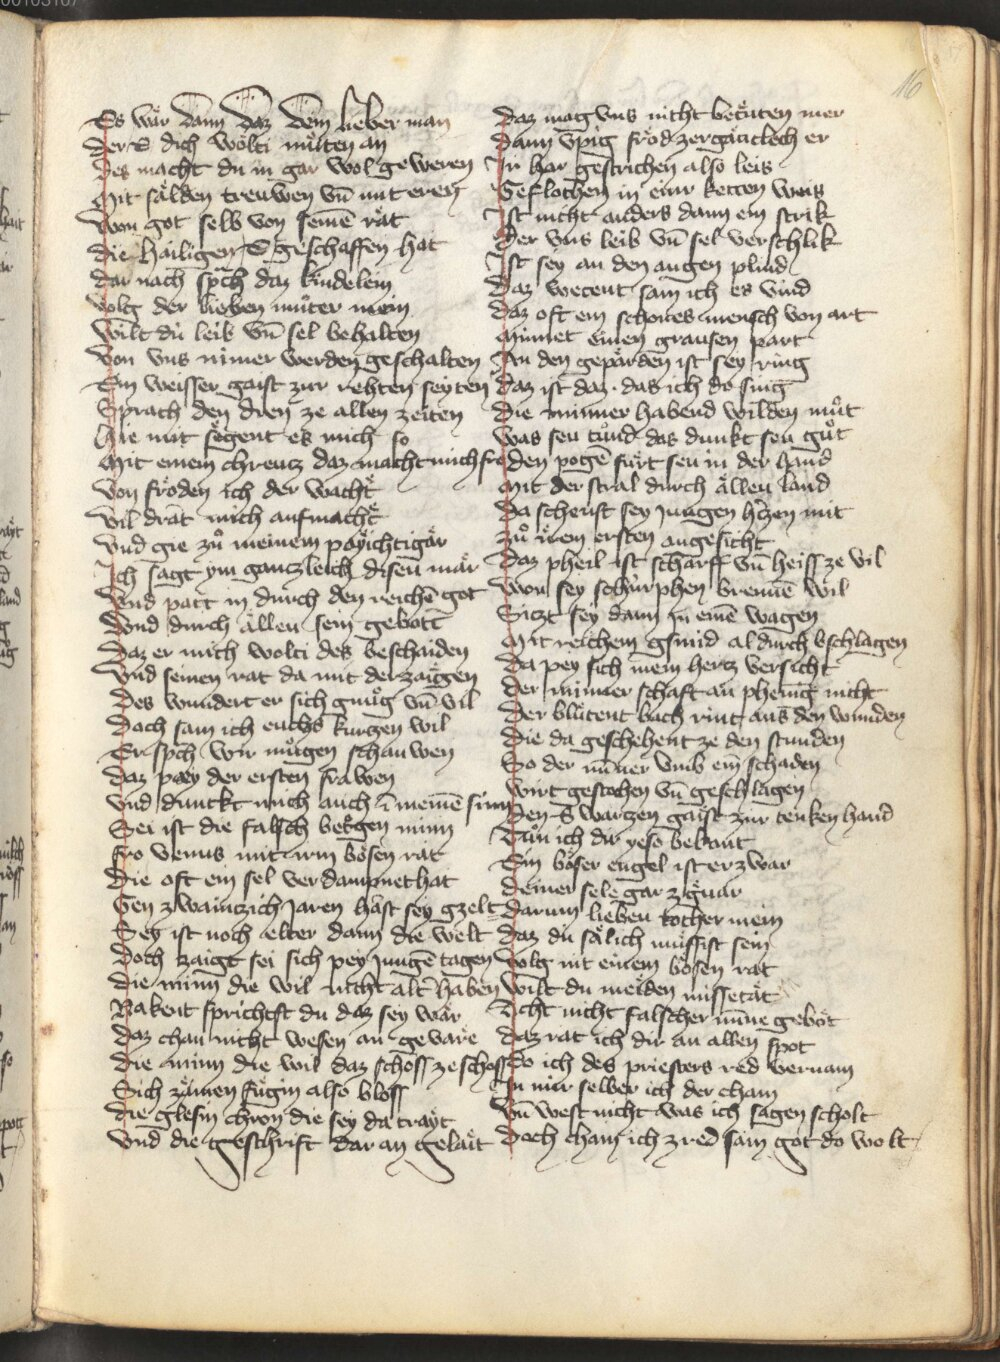 16
Es wär dann daz dem lieber man
Der dich wölti müten an
Des macht du in gar wol geweren
Mit sälden trewen vn̄ mit eren
Won got selb von seinē rat
Die hailigen E geschaffen hat
Dar nach sprach daz kindelein
Volg der lieben müter mein
Wilt du leib vn̄ sel behalten
Von vns nimer werden geschalten
Ein weisser gaist zur rehten seyten
Sprach den dien ze allen zeiten
Hie mit segent es mich so
Mit einem chreucz daz macht mich fro
Von fröden ich der wachet
Vil drat mich aufmachet
Vnd gie zů meinem payichtigär
Ich sagt ym ganczleich disen mär
Vnd patt in durch den reichē got
Vnd durch allen sein gebott
Daz er mich wolti des beschaiden
Vnd seinen rat da mit derzaigen
Des wundert er sich gnůg vn̄ vil
Doch sam ich euchs kurczen wil
Er sprach wir mügen schauwen
Daz pey der ersten frawen
Vnd dunckt mich auch ī meinē sinn
Sei ist die falsch betrogen minn
Fro venus mit irm bösen rat
Die oft ein sel verdampnet hat
Gen zwainczich jaren hast sey gzelt
Sey ist noch elter dann die welt
Doch zaigt sei sich pey jungē tagen
Die minn die wil nicht alt haben
Nakent sprichst du daz sey wär
Daz chan nicht wesen an gevare
Die minn die wil daz schoss ze schoss
Sich zämen fügin also bloss
Die glesin chron die sey da trayt
Vnd die geschrift dar an gelait
Daz mag vns nicht betüten mer
Dann vpig fröd zergäncklech er
Ir har gestrichen also leis
Geflochten in einr ketten weis
Ist nicht anders dann ein strik
Der vns leib vn̄ sel verschlik
Ist sey an den augen plind
Daz wecent sam ich es vind
Daz oft ein schönes mensch von art
Minnet einen grausen part
An den gepärden ist sey ring
Daz ist daz das ich do sing
Die minner habend wilden můt
Was seu tůnd das dunkt seu gůt
Den pogē fürt seu in der hand
Mit der stral durch allen land
Da scheust sey jungen hʼczen mit
Zů irem ersten angesicht
Daz pheil ist scharff vn̄ heiss ze vil
Won sey schürphen brennē wil
Siczt sey dann in einē wagen
Mit reichem gsmid al durch bschlagen
Da pey sich mein hertz versicht
Der minner schaft an phenig nicht
Der blütent bach rint aus den wunden
Die da geschehent ze den stunden
So der minner vmb ein schaden
Wirt gestochen vn̄ geschlagen
Den swarczen gaist zur tenken hand
Tůn ich dir yeso bekant
Ein böser engel ist er zwar
Deiner sele gar z gnar
Darum lieben tochter mein
Daz du sälich müssist sein
Volg nit einem bösen rat
Wilt du meiden missetät
Acht nicht falscher mine gebot
Daz rat ich dir an allen spot
Do ich des priesters red vernam
In mir selber ich der cham
Vn̄ west nicht was ich sagen scholt
Doch cham ich z red sam got do wolt